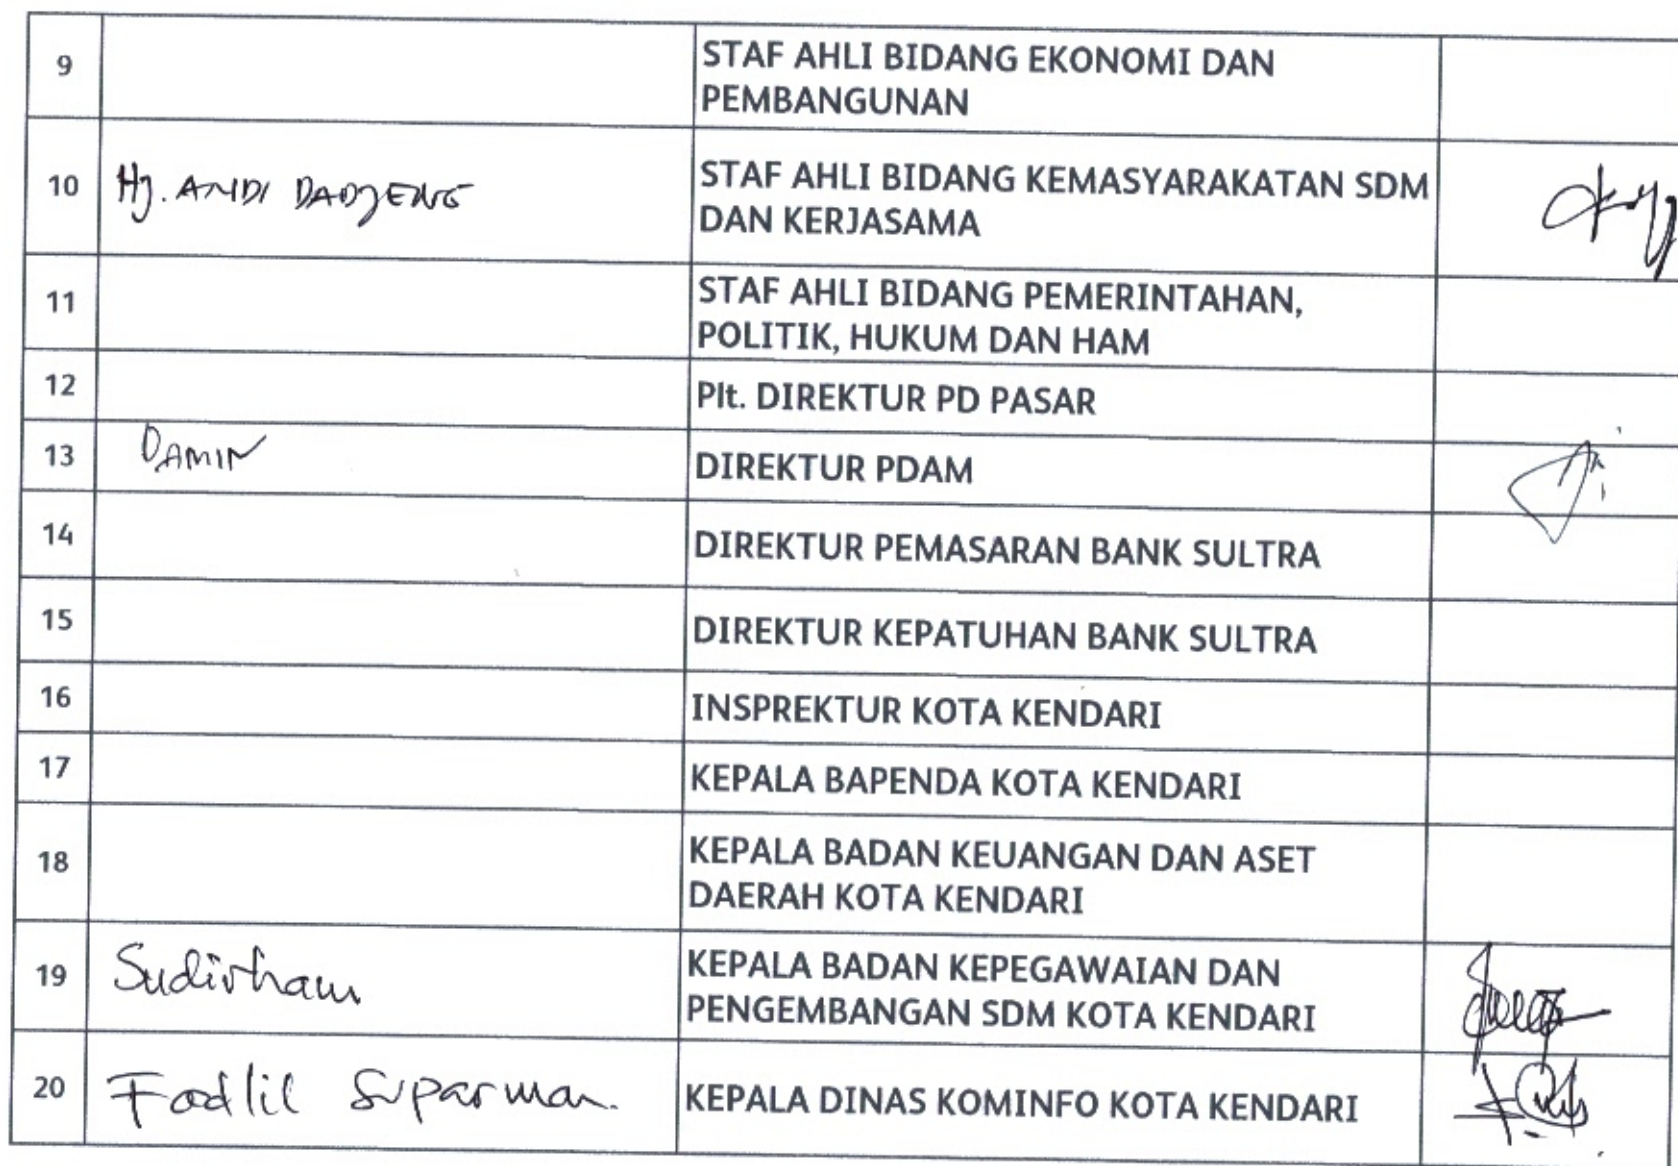 9
STAF AHLI BIDANG EKONOMI DAN
PEMBANGUNAN
10
Hj. ANDI DADJENG
STAF AHLI BIDANG KEMASYARAKATAN SDM
DAN KERJASAMA
11
STAF AHLI BIDANG PEMERINTAHAN,
POLITIK, HUKUM DAN HAM
12
Plt. DIREKTUR PD PASAR
13
DAMIN
DIREKTUR PDAM
14
DIREKTUR PEMASARAN BANK SULTRA
15
DIREKTUR KEPATUHAN BANK SULTRA
16
INSPREKTUR KOTA KENDARI
17
KEPALA BAPENDA KOTA KENDARI
18
KEPALA BADAN KEUANGAN DAN ASET
DAERAH KOTA KENDARI
19
Sudirham
KEPALA BADAN KEPEGAWAIAN DAN
PENGEMBANGAN SDM KOTA KENDARI
20
Fadlil Suparman.
KEPALA DINAS KOMINFO KOTA KENDARI